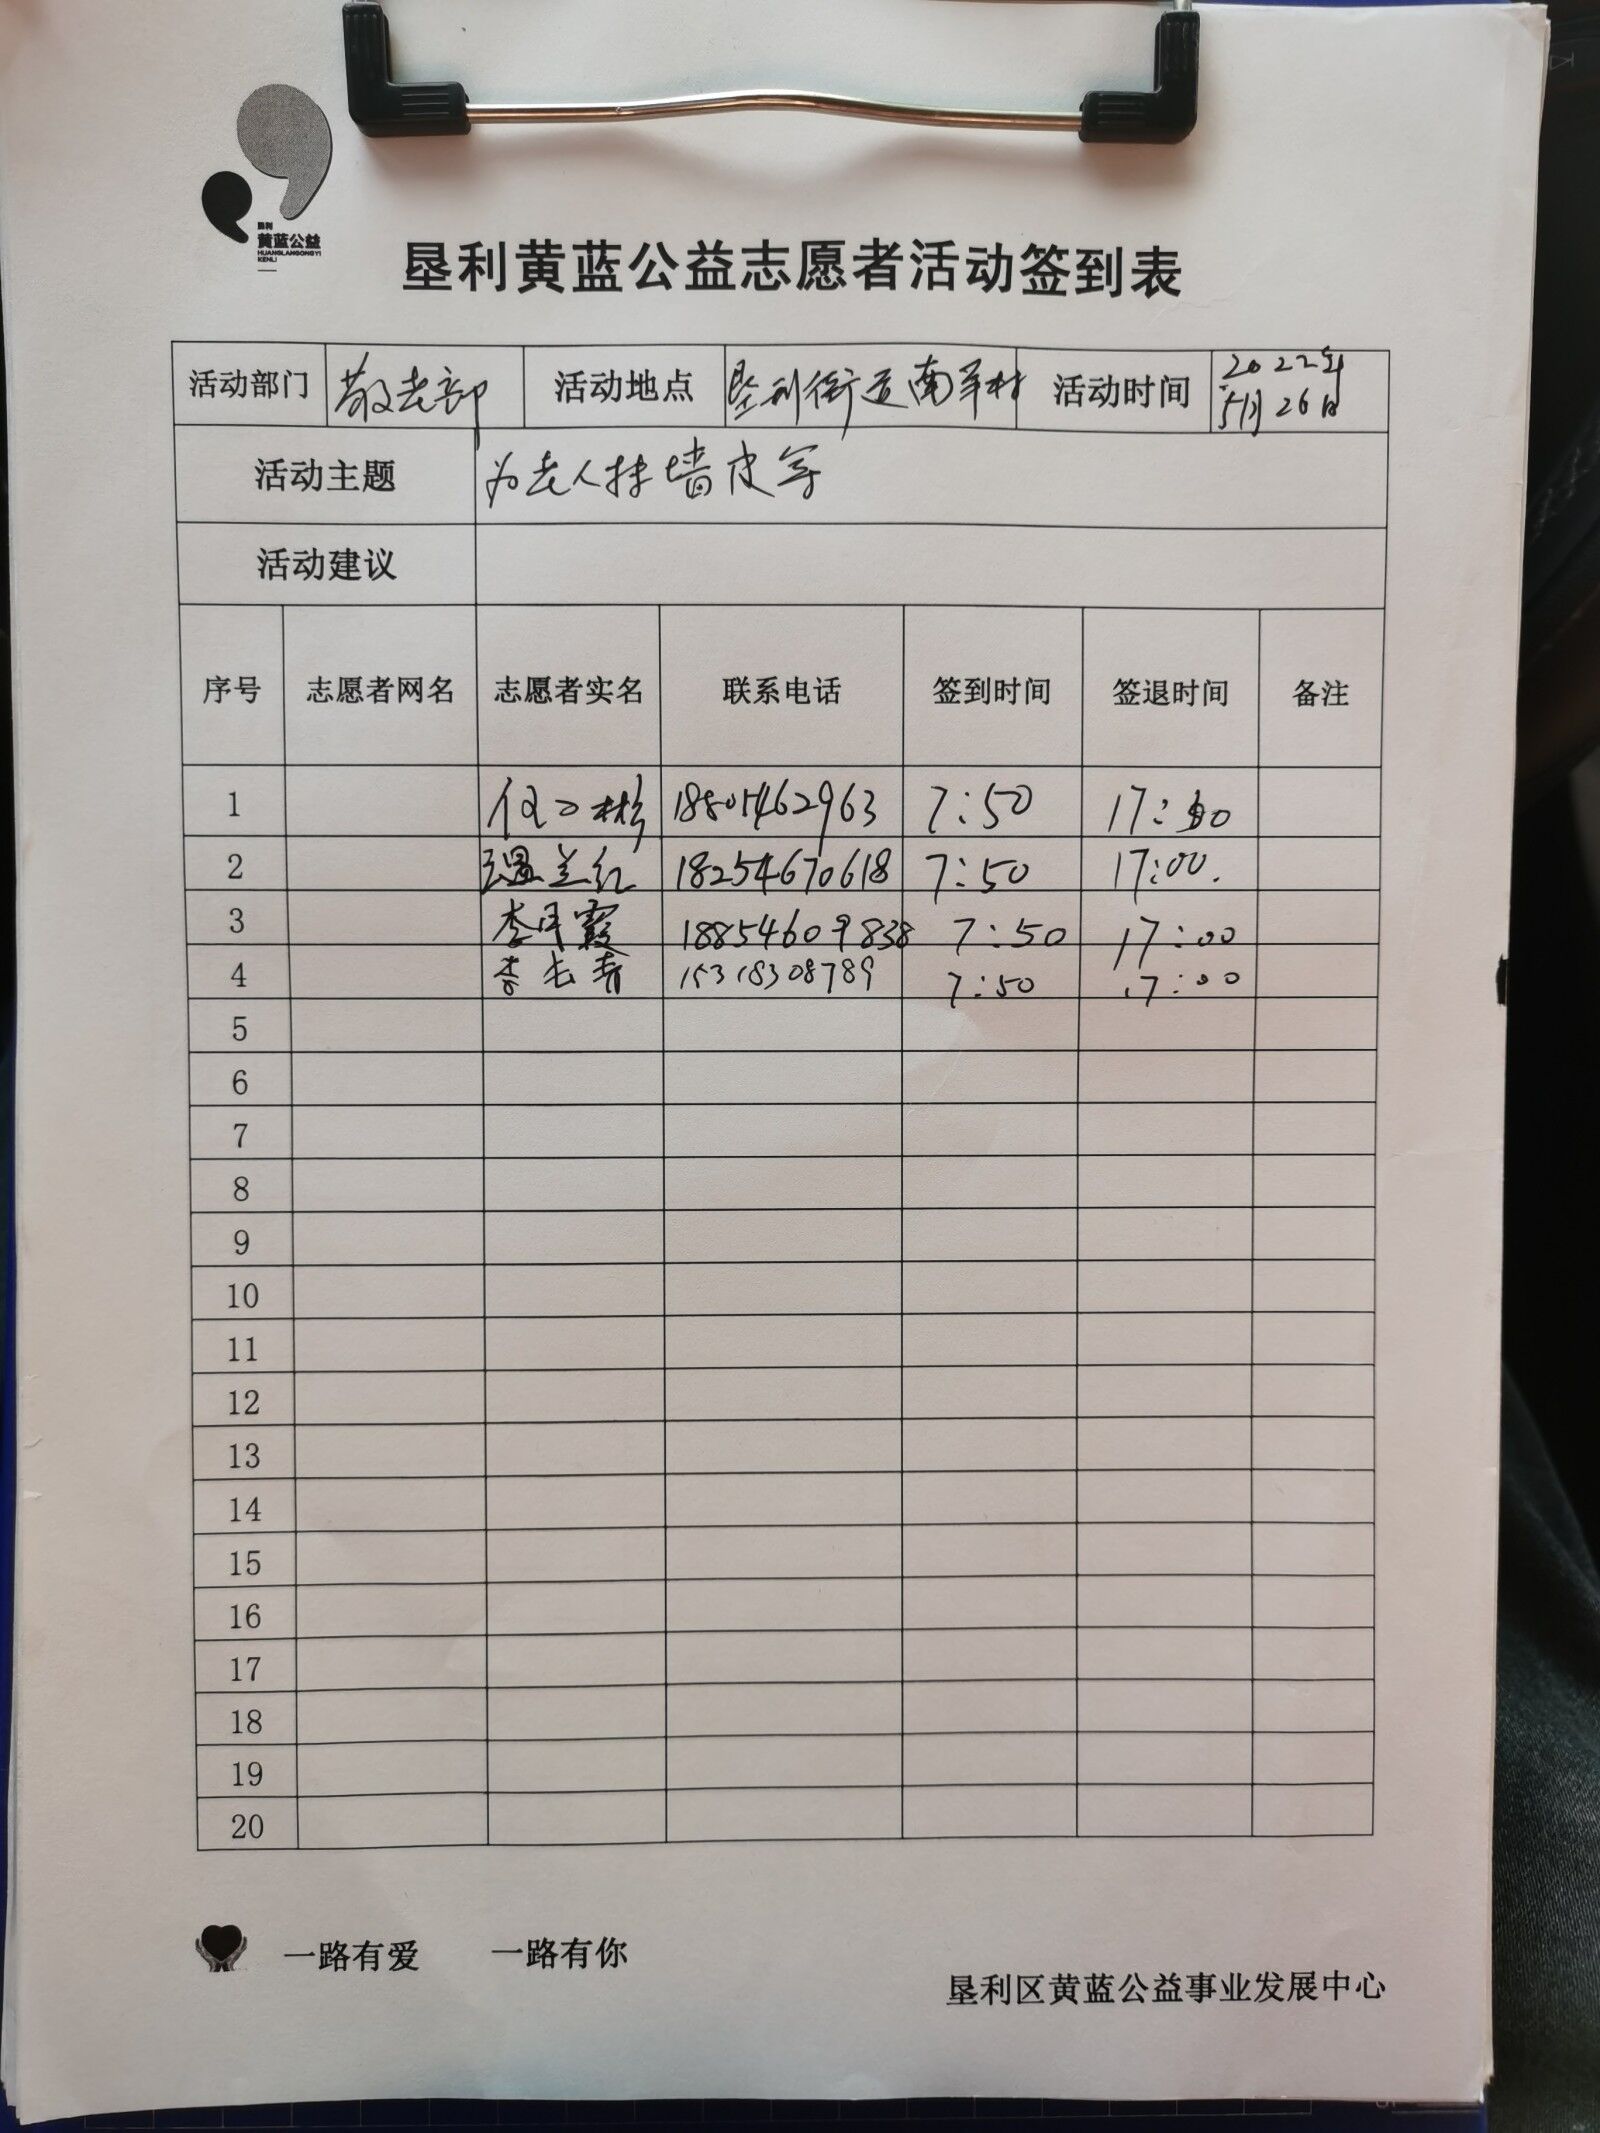 垦利
黄蓝公益
HUANGLANGONGYI
KENLI
垦利黄蓝公益志愿者活动签到表
活动部门 敬老部 活动地点 垦利街道南羊村 活动时间 2022年5月26日
活动主题 为老人抹墙皮等
活动建议
序号 志愿者网名 志愿者实名 联系电话 签到时间 签退时间 备注
1 18805462963 7:50
2 温兰红 18254670618 7:50 17:00.
3 李月霞 18854609838 7:50 17:00
4 李长青 15318308789 7:50 17:00
5
6
7
8
9
10
11
12
13
14
15
16
17
18
19
20
一路有爱 一路有你
垦利区黄蓝公益事业发展中心